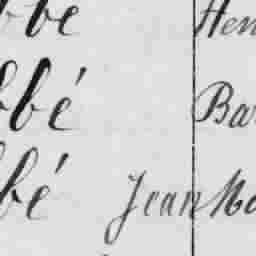 bbé Hen
bbé Bar
bbé Jean Ma